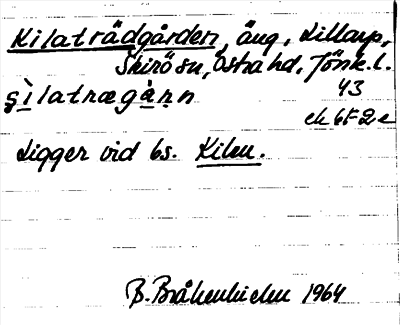 Kilaträdgården, äng, Lillarp,
Skirö sn, Östra hd, Jönk.l.
şìlatrægàṇn 43
ek 6F2e
Ligger vid bs. Kilen.
B. Bråkenhielm 1964